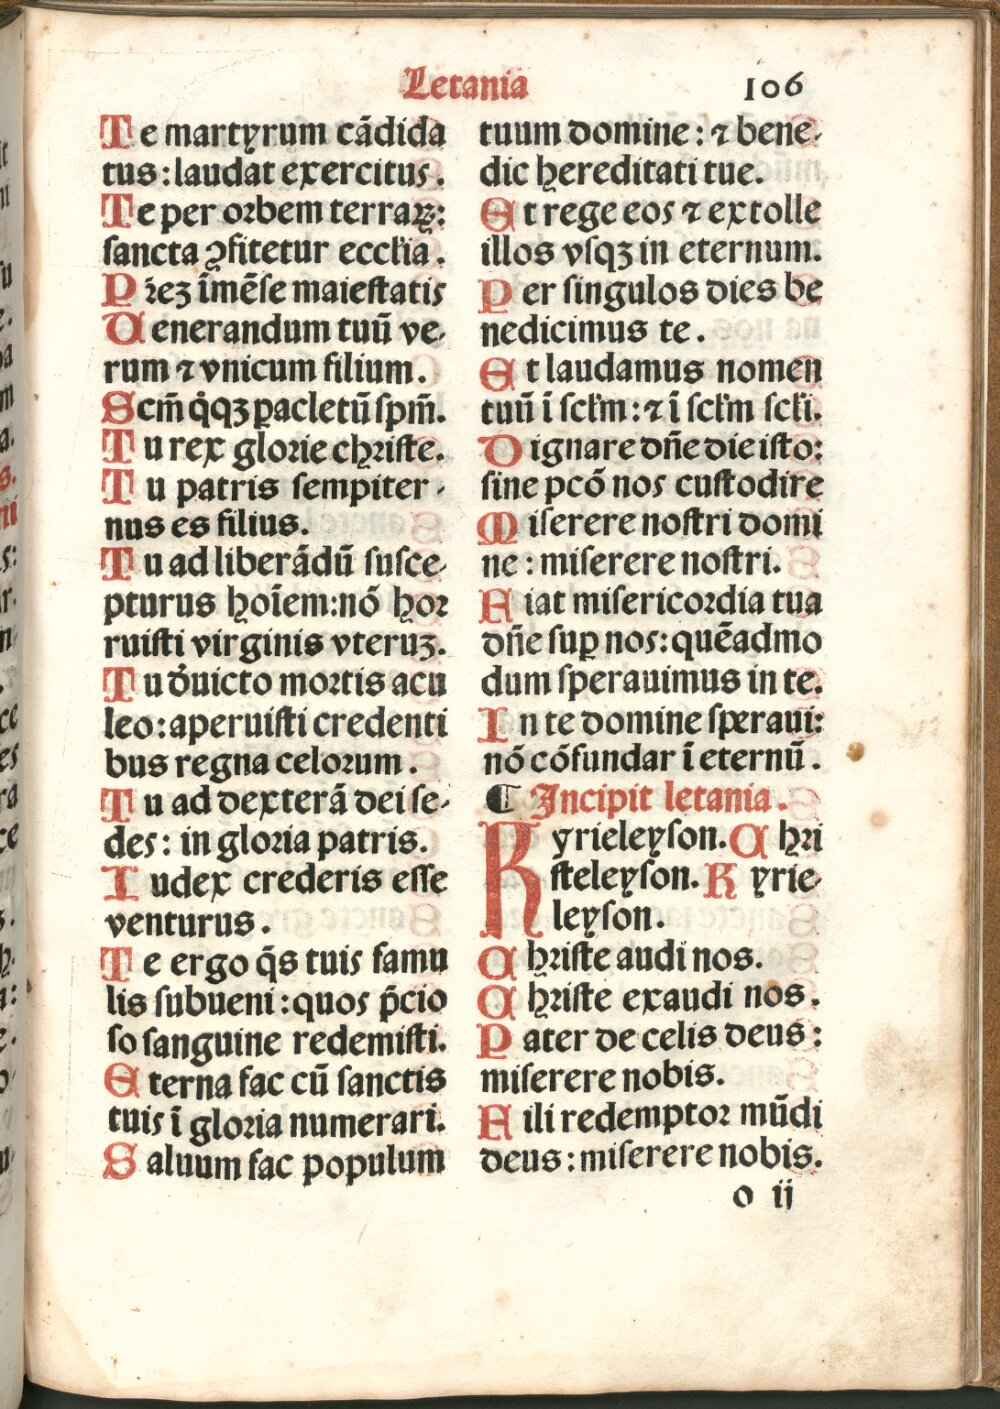 Letania
106
Te martyrum cãdida
tus: laudat exercitus.
Te per orbem terraꝝ:
sancta ꝯfitetur eccľia.
Pr̃eʒ ĩmẽse maiestatis
Uenerandum tuũ ve-
rum ⁊ vnicum filium.
Scm̃ q̇qʒ ꝑacletũ spm̃.
Tu rex glorie christe.
Tu patris sempiter-
nus es filius.
Tu ad liberãdũ susce-
pturus hoĩem: nõ hor
ruisti virginis vteruʒ.
Tu d̕uicto mortis acu
leo: aperuisti credenti
bus regna celorum.
Tu ad dexterã dei se-
des: in gloria patris.
Iudex crederis esse
venturus.
Te ergo q̃s tuis famu
lis subueni: quos p̃cio
so sanguine redemisti.
Eterna fac cũ sanctis
tuis ĩ gloria numerari.
Saluum fac populum
tuum domine: ⁊ bene-
dic hereditati tue.
Et rege eos ⁊ extolle
illos vsqʒ in eternum.
Per singulos dies be
nedicimus te.
Et laudamus nomen
tuũ ĩ scľm: ⁊ ĩ scľm scľi.
Dignare dñe die isto:
sine pcõ nos custodire
Miserere nostri domi
ne: miserere nostri.
Fiat misericordia tua
dñe suꝑ nos: quẽadmo
dum sperauimus in te.
In te domine speraui:
nõ cõfundar ĩ eternũ.
¶ Incipit letania.
Kyrieleyson. Chri
steleyson. Kyrie-
leyson.
Christe audi nos.
Christe exaudi nos.
Pater de celis deus:
miserere nobis.
Fili redemptor mũdi
deus: miserere nobis.
o ij